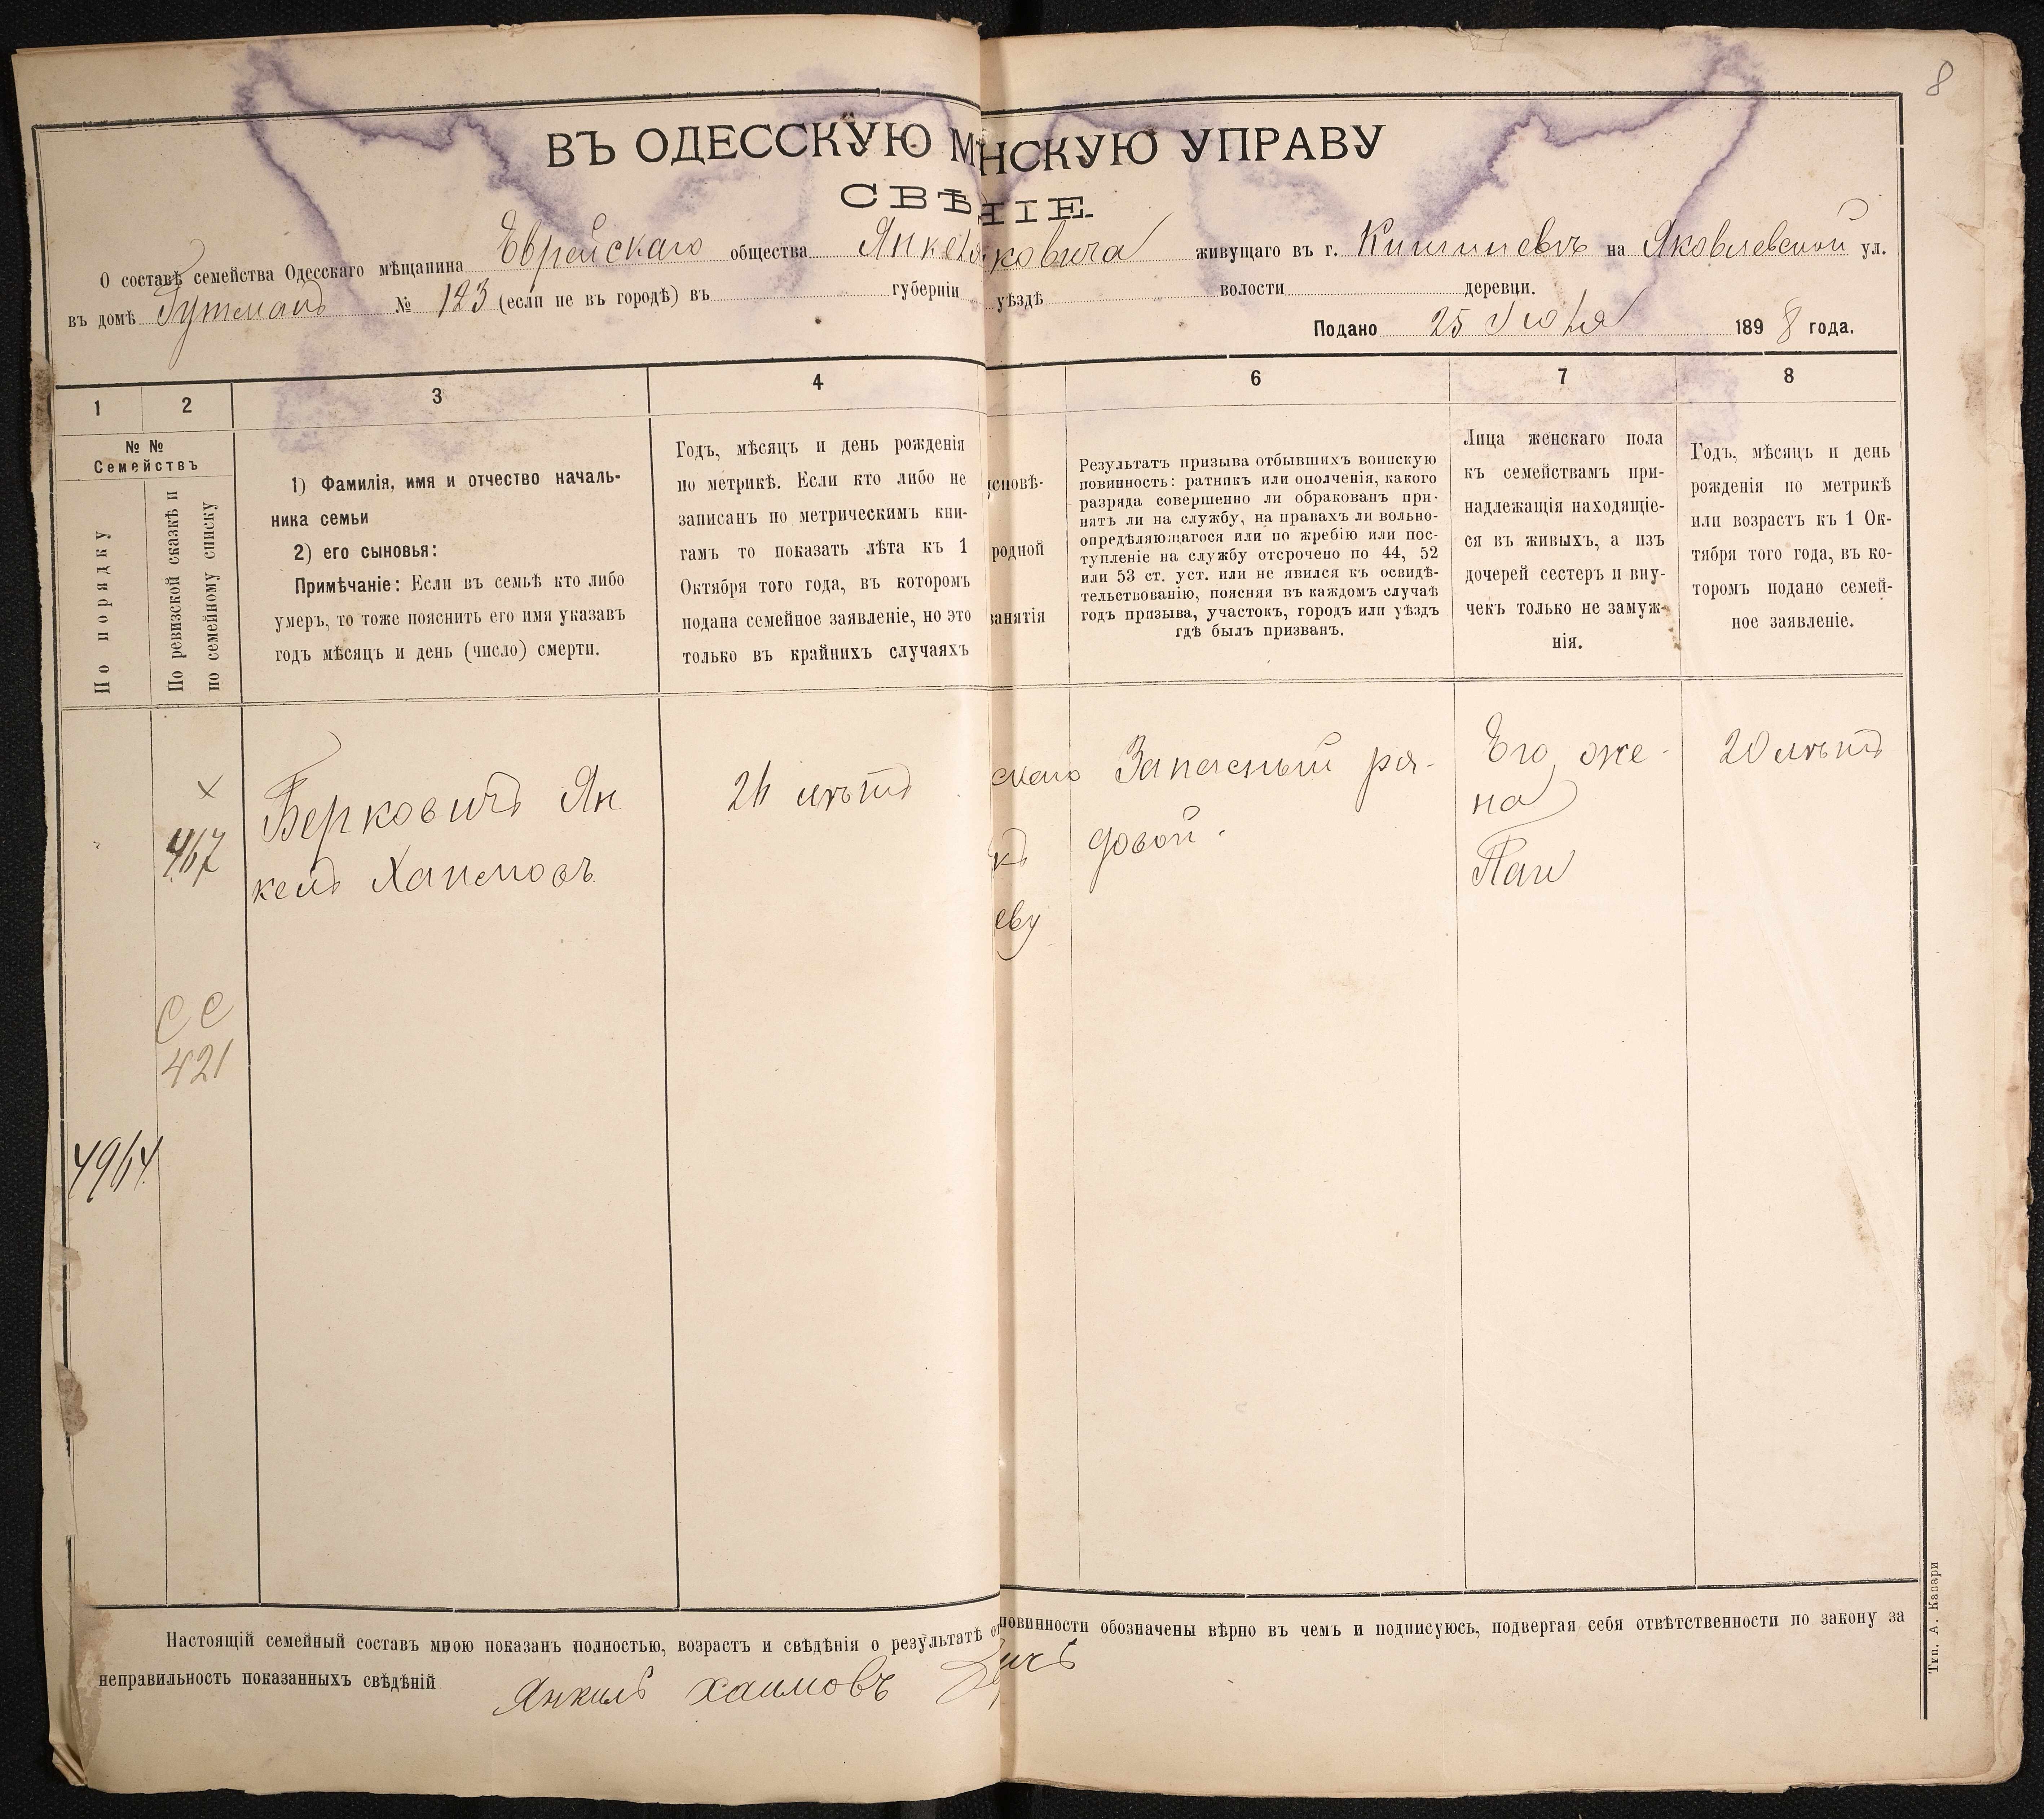 8
ВЪ ОДЕССКУЮ М НСКУЮ УПРАВУ
СВѢ НІЕ.
О составѣ семейства Одесскаго мѣщанина Еврейскаго общества Янкеля ковича живущаго въ г. Кишиневѣ на Яковлевской ул.
въ домѣ Гутманъ № 123 (если не въ городѣ) въ губерніи уѣздѣ волости деревни.
Подано 25 1898 года.
1 2 3 4 6 7 8
№ №
Семействъ
По порядку
По ревизской сказкѣ и
по семейному списку
1) Фамилія, имя и отчество началь-
ника семьи
2) его сыновья:
Примѣчаніе: Если въ семьѣ кто либо
умеръ, то тоже пояснить его имя указавъ
годъ мѣсяцъ и день (число) смерти.
Годъ, мѣсяцъ и день рожденія
по метрикѣ. Если кто либо не
записанъ по метрическимъ кни-
гамъ то показать лѣта къ 1
Октября того года, въ которомъ
подана семейное заявленіе, но это
только въ крайнихъ случаяхъ
исповѣ-
родной
занятія
Результатъ призыва отбывшихъ воинскую
повинность: ратникъ или ополченія, какого
разряда совершенно ли обракованъ при-
нятъ ли на службу, на правахъ ли вольно-
опредѣляющагося или по жребію или пос-
тупленіе на службу отсрочено по 44, 52
или 53 ст. уст. или не явился къ освидѣ-
тельствованію, поясняя въ каждомъ случаѣ
годъ призыва, участокъ, городъ или уѣздъ
гдѣ былъ призванъ.
Лица женскаго пола
къ семействамъ при-
надлежащія находящіе-
ся въ живыхъ, а изъ
дочерей сестеръ и вну-
чекъ только не замуж-
нія.
Годъ, мѣсяцъ и день
рожденія по метрикѣ
или возрастъ къ 1 Ок-
тября того года, въ ко-
торомъ подано семей-
ное заявленіе.
х
467
Берковичъ Ян
кель Хаимовъ
24 лѣтъ
скаго
къ
еву
Запасный ря-
довой.
Его же-
на
20 лѣтъ
СС
421
4964
Настоящій семейный составъ мною показанъ полностью, возрастъ и свѣдѣнія о результатѣ от повинности обозначены вѣрно въ чемъ и подписуюсь, подвергая себя отвѣтственности по закону за
неправильность показанныхъ свѣдѣній Янкиль хаимовъ ичъ
Тип. А. Капари